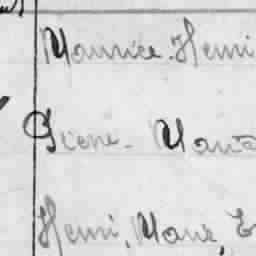 Maurice. Henri
Irène. Maria
Henri, Marie, E